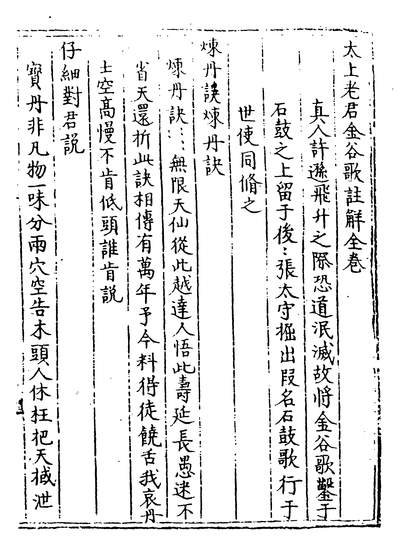 太上老君金谷歌註解全卷
真人許遜飛升之際恐道泯滅故將金谷歌鑿于
石鼓之上留于後〻張太守掘出改名石鼓歌行于
世使同脩之
煉丹訣煉丹訣
煉丹訣〻無限天仙從此越達人悟此壽延長愚迷不
省天還折此訣相傳有萬年予今料得徒饒舌我哀丹
士空高慢不肯低頭誰肯説
仔細對君説
寶丹非凡物一味分兩穴空告木頭人休枉把天椷泄